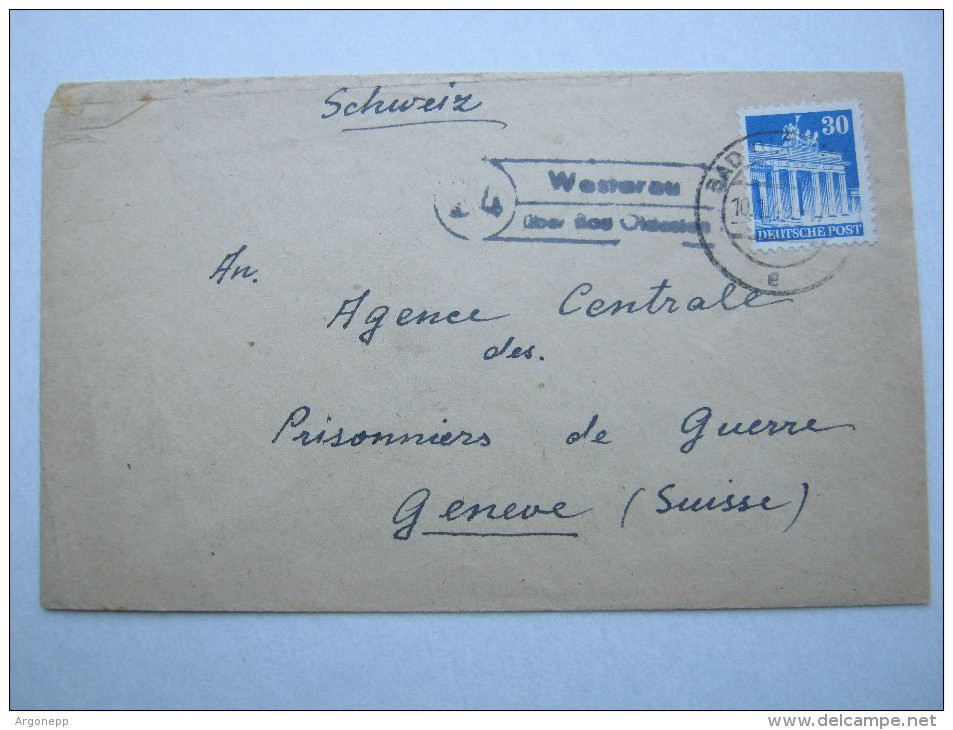 Schweiz
30
DEUTSCHE POST
BAD
10.
e
24
Westerau
über Bad Oldesloe
An.
Agence Centrale
des.
Prisonniers de Guerre
Geneve (Suisse)
Argonepp
www.delcampe.net